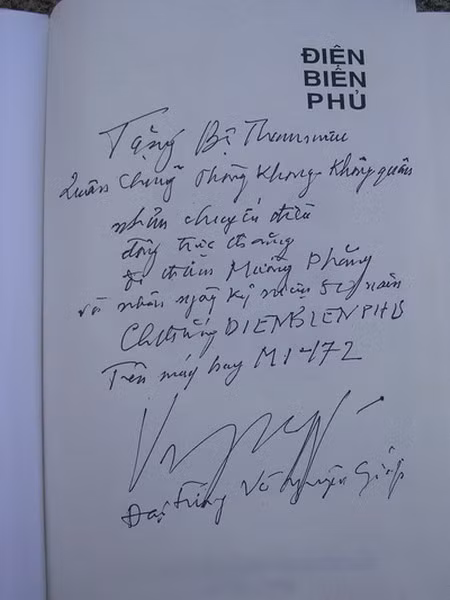 ĐIỆN
BIÊN
PHỦ
Tặng Bộ Tham mưu
Quân chủng Phòng không - Không quân
nhân chuyến
trực thăng
đi thăm Mường Phăng
và nhân ngày kỷ niệm 50 năm
Chiến thắng DIENBIENPHU
Trên máy bay MI 472
Đại tướng Võ Nguyên Giáp